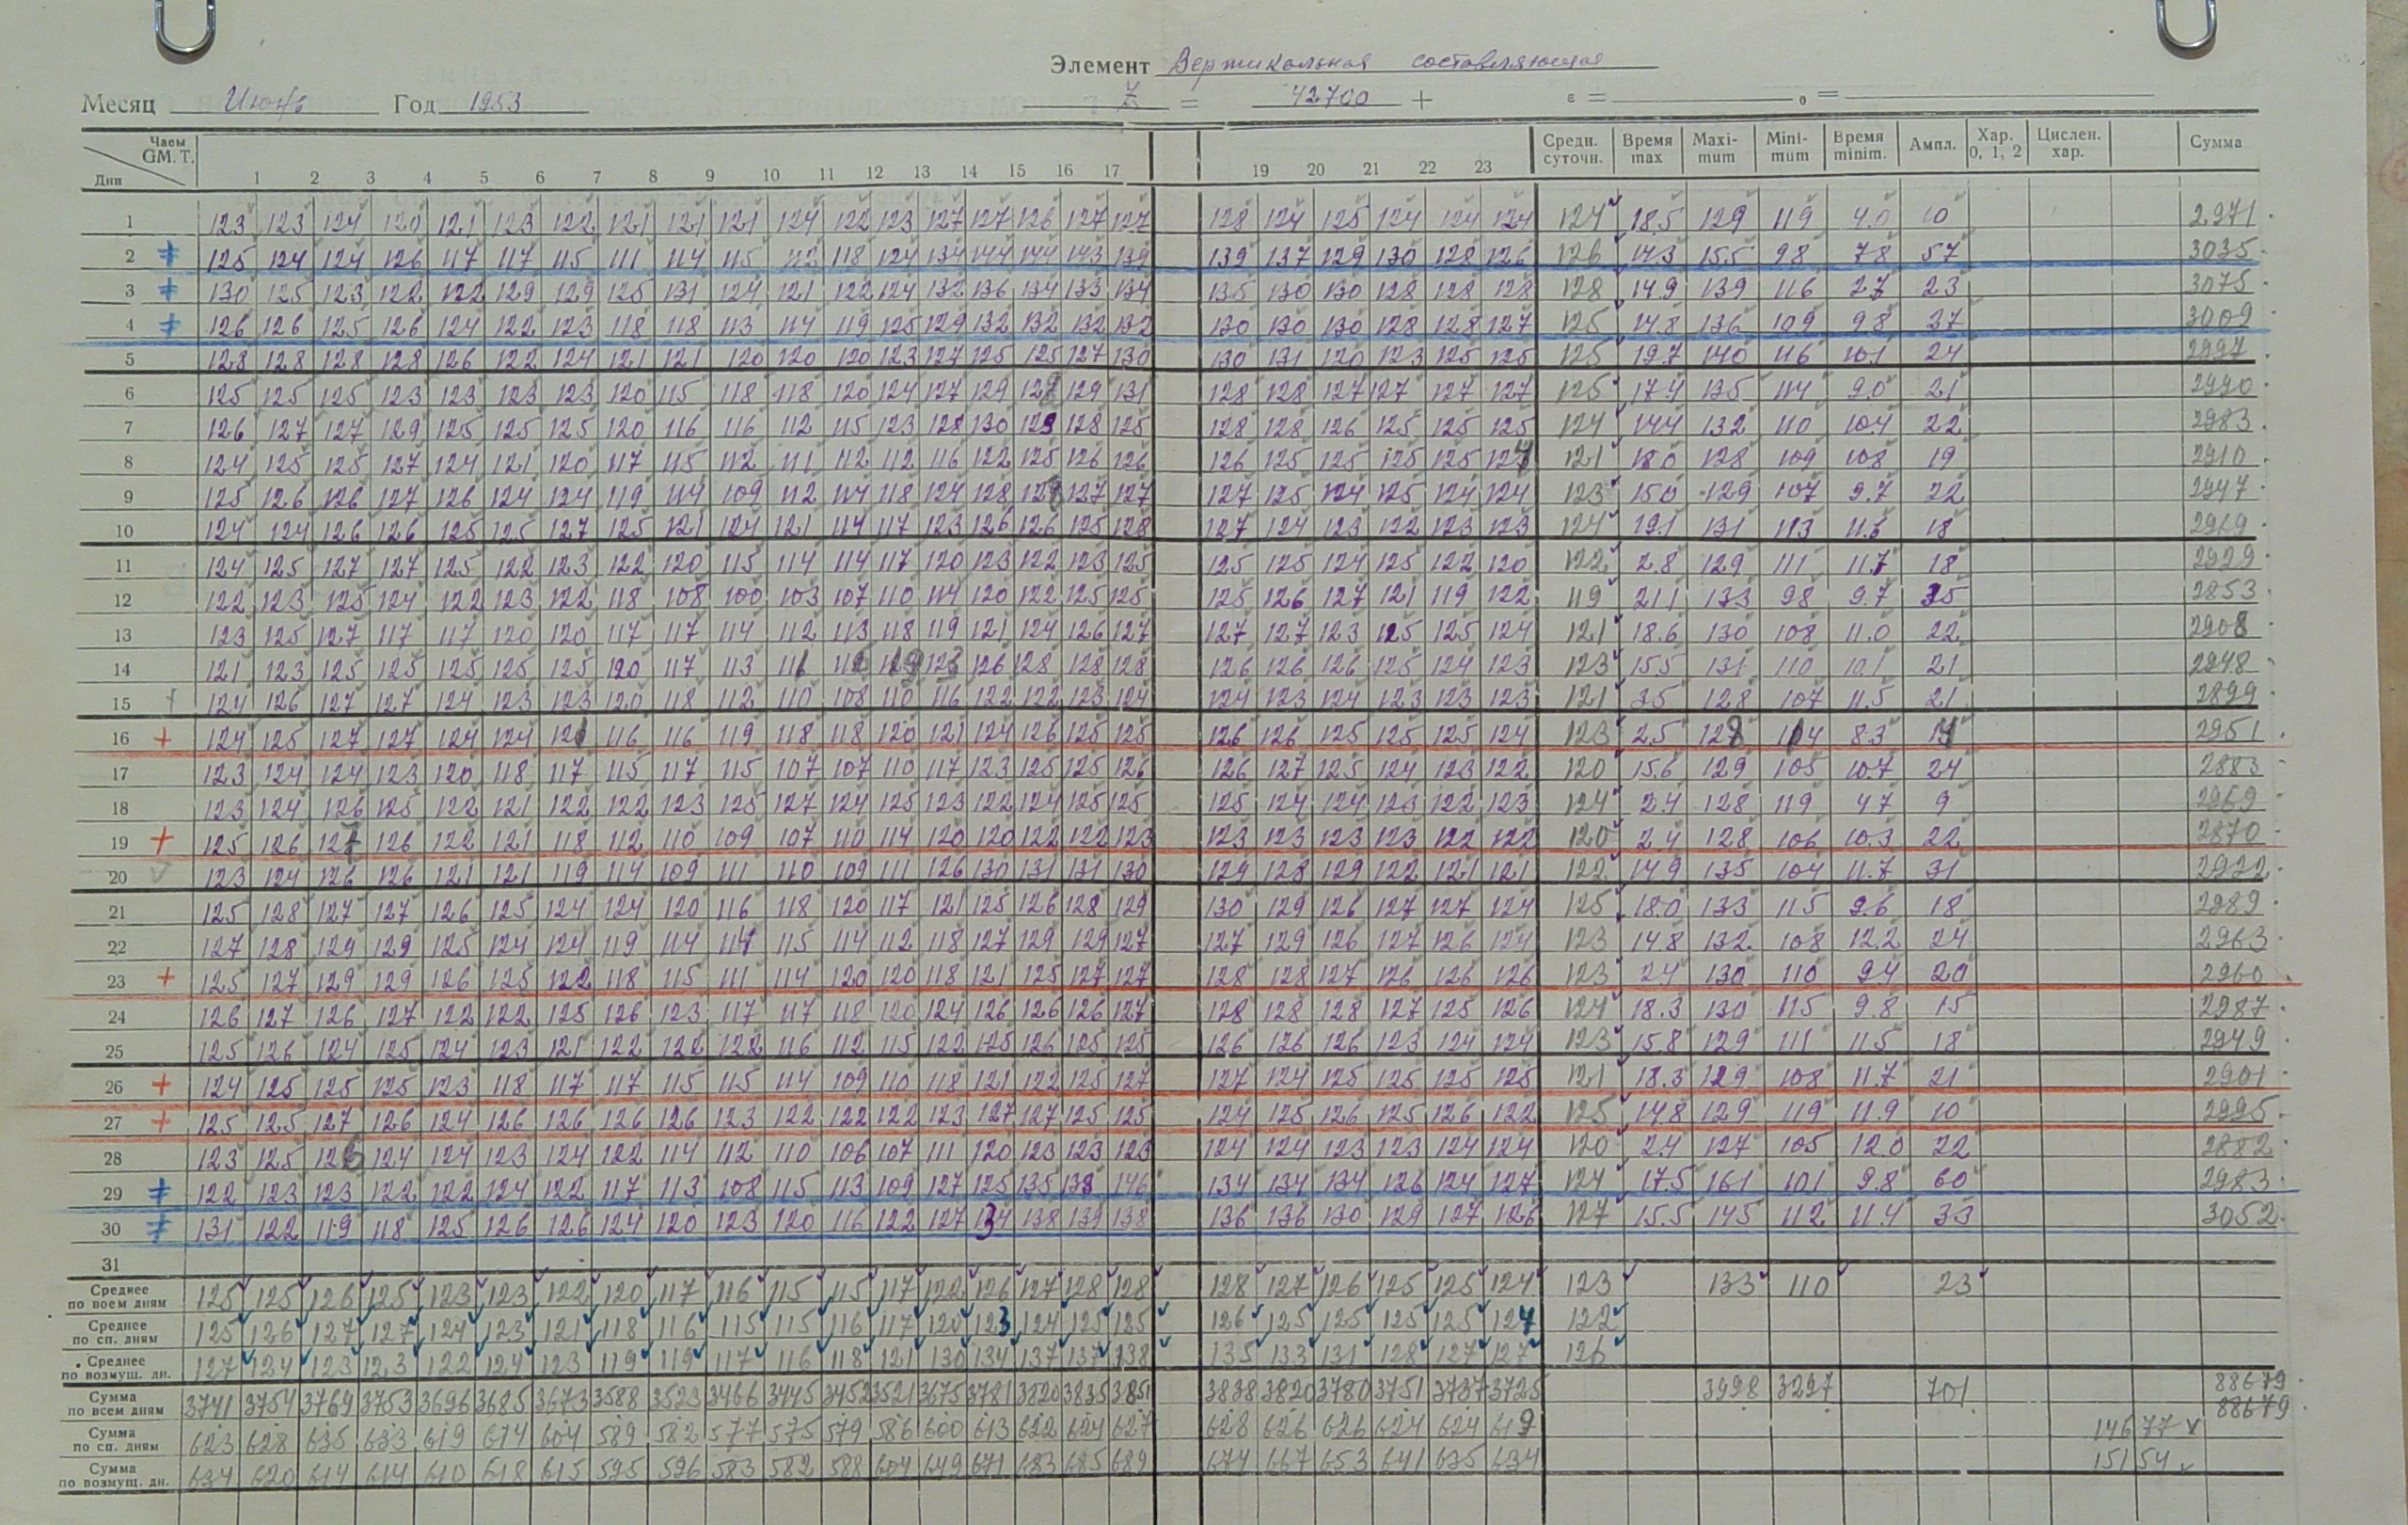 Элемент Вертикальная составляющая
Месяц Июнь Год 1953 Z = 42700 + ε = o =
Часы GM. T. Дни 1 2 3 4 5 6 7 8 9 10 11 12 13 14 15 16 17 19 20 21 22 23 Средн. суточн. Время max Maximum Minimum Время minim. Ампл. Хар. 0, 1, 2 Цислен. хар. Сумма
1 123 123 124 120 121 123 122 121 121 121 124 122 123 127 127 126 127 127 128 124 125 124 124 124 124 18.5 129 119 4.0 10 2971
2 125 124 124 126 117 117 115 111 114 115 112 118 124 134 144 144 143 139 139 137 129 130 128 126 126 14.3 155 98 7.8 57 3035
3 130 125 123 122 122 129 129 125 131 124 121 122 124 132 136 134 133 134 135 130 130 128 128 128 128 14.9 139 116 2.7 23 3075
4 126 126 125 126 124 122 123 118 118 113 114 119 125 129 132 132 132 132 130 130 130 128 128 127 125 14.8 136 109 9.8 27 3009
5 128 128 128 128 126 122 124 121 121 120 120 120 123 127 125 125 127 130 130 131 120 123 125 125 125 19.7 140 116 10.1 24 2997
6 125 125 125 123 123 123 123 120 115 118 118 120 124 127 129 127 129 131 128 128 127 127 127 127 125 17.4 135 114 9.0 21 2990
7 126 127 127 129 125 125 125 120 116 116 112 115 123 128 130 129 128 125 128 128 126 125 125 125 124 14.4 132 110 10.4 22 2983
8 124 125 125 127 124 121 120 117 115 112 111 112 112 116 122 125 126 126 126 125 125 125 125 124 121 18.0 128 109 10.8 19 2910
9 125 126 126 127 126 124 124 119 114 109 112 114 118 124 128 128 127 127 127 125 124 125 124 124 123 15.0 129 107 9.7 22 2947
10 124 124 126 126 125 125 127 125 121 124 121 114 117 123 126 126 125 128 127 124 123 122 123 123 124 19.1 131 113 11.6 18 2969
11 124 125 127 127 125 122 123 122 120 115 114 114 117 120 123 122 123 125 125 125 124 125 122 120 122 2.8 129 111 11.7 18 2929
12 122 123 125 124 122 123 122 118 108 100 103 107 110 114 120 122 125 125 125 126 127 121 119 122 119 21.1 133 98 9.7 35 2853
13 123 125 127 117 117 120 120 117 117 114 112 113 118 119 121 124 126 127 127 127 123 125 125 124 121 18.6 130 108 11.0 22 2908
14 121 123 125 125 125 125 125 120 117 113 116 115 119 123 126 128 128 128 126 126 126 125 124 123 123 15.5 131 110 10.1 21 2948
15 124 126 127 127 124 123 123 120 118 112 110 108 110 116 122 122 123 124 124 123 124 123 123 123 121 3.5 128 107 11.5 21 2899
16 124 125 127 127 124 124 121 116 116 119 118 118 120 121 124 126 125 125 126 126 125 125 125 124 123 2.5 128 114 8.3 14 2951
17 123 124 124 123 120 118 117 115 117 115 107 107 110 117 123 125 125 126 126 127 125 124 123 122 120 15.6 129 105 10.7 24 2883
18 123 124 126 125 122 121 122 122 123 125 127 124 125 123 122 124 125 125 125 124 124 123 122 123 124 2.4 128 119 4.7 9 2969
19 125 126 127 126 122 121 118 112 110 109 107 110 114 120 120 122 122 123 123 123 123 123 122 122 120 2.4 128 106 10.3 22 2870
20 123 124 126 126 121 121 119 114 109 111 110 109 111 126 130 131 131 130 129 128 129 122 121 121 122 14.9 135 104 11.7 31 2922
21 125 128 127 127 126 125 124 124 120 116 118 120 117 121 125 126 128 129 130 129 126 127 127 124 125 18.0 133 115 9.6 18 2989
22 127 128 129 129 125 124 124 119 114 114 115 114 112 118 127 129 129 127 127 129 126 127 126 124 123 14.8 132 108 12.2 24 2963
23 125 127 129 129 126 125 122 118 115 111 114 120 120 118 121 125 127 127 128 128 127 126 126 126 123 2.4 130 110 9.4 20 2960
24 126 127 126 127 122 122 125 126 123 117 117 118 120 124 126 126 126 127 128 128 128 127 125 126 124 18.3 130 115 9.8 15 2987
25 125 126 124 125 124 123 121 122 122 122 116 112 115 122 125 126 125 125 126 126 126 123 124 124 123 15.8 129 111 11.5 18 2949
26 124 125 125 125 123 118 117 117 115 115 114 109 110 118 121 122 125 127 127 124 125 125 125 125 121 18.3 129 108 11.7 21 2901
27 125 125 127 126 124 126 126 126 126 123 122 122 122 123 127 127 125 125 124 125 126 125 126 122 125 14.8 129 119 11.9 10 2995
28 123 125 126 124 124 123 124 122 114 112 110 106 107 111 120 123 123 123 124 124 123 123 124 124 120 2.4 127 105 12.0 22 2882
29 122 123 123 122 122 124 122 117 113 108 115 113 109 127 125 135 138 146 134 134 134 126 124 127 124 17.5 161 101 9.8 60 2983
30 131 122 119 118 125 126 126 124 120 123 120 116 122 127 134 138 139 138 136 136 130 129 127 126 127 15.5 145 112 11.4 33 3052
31
Среднее по всем дням 125 125 126 125 123 123 122 120 117 116 115 115 117 122 126 127 128 128 128 127 126 125 125 124 123 133 110 23
Среднее по сп. дням 125 126 127 127 124 123 121 118 116 115 115 116 117 120 123 124 125 125 126 125 125 125 125 124 122
Среднее по возмущ. дн. 127 124 123 123 122 124 123 119 119 117 116 118 121 130 134 137 137 138 135 133 131 128 127 127 126
Сумма по всем дням 3741 3754 3769 3753 3696 3685 3673 3588 3523 3466 3445 3452 3521 3675 3781 3820 3835 3851 3838 3820 3780 3751 3737 3725 3998 3297 701 88679
88679
Сумма по сп. дням 623 628 635 633 619 614 604 589 582 577 575 579 586 600 613 622 624 627 628 626 626 624 624 619 14677
Сумма по возмущ. дн. 634 620 614 614 610 618 615 595 596 583 582 588 604 649 671 683 685 689 674 667 653 641 635 634 15154